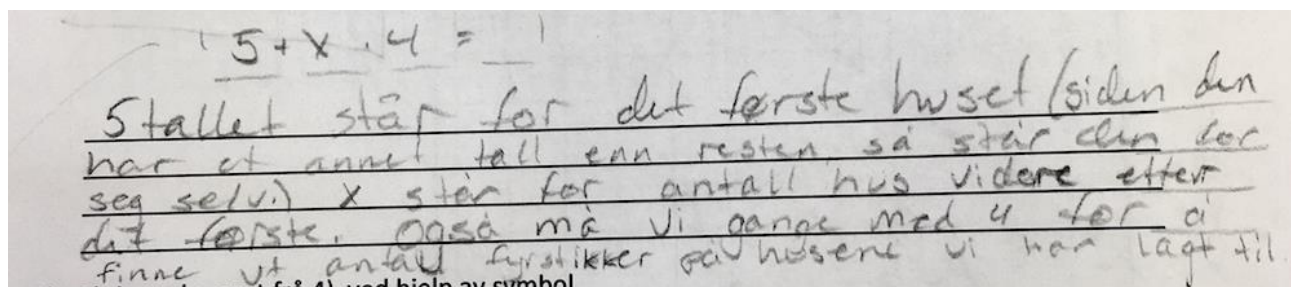 5 + X . 4 = _
5 tallet står for det første huset (siden den
har et annet tall enn resten, så står den for
seg selv.) X står for antall hus videre etter
det første. Også må vi gange med 4 for å
finne ut antall fyrstikker på husene vi har lagt til
ved hjelp av symbol